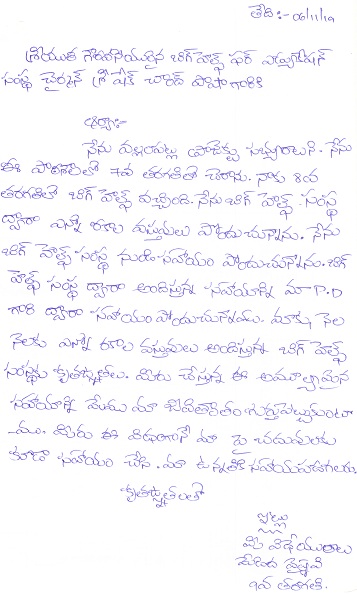 తేది:- 06/11/19
శ్రీయుత గౌరవనీయులైన బిగ్ హెల్ప్ ఫర్ ఎడ్యుకేషన్
సంస్థ చైర్మన్ శ్రీ షేక్ చాంద్ పాషా గారికి
ఆర్యా:-
నేను ప్రాజెక్టు విద్యార్థినిని.
ఈ పాఠశాలలో 7వ తరగతిలో చేరాను. నాకు 8వ
తరగతిలో బిగ్ హెల్ప్ వచ్చింది. నేను బిగ్ హెల్ప్ సంస్థ
ద్వారా ఎన్నో రకాల వస్తువులు పొందుచున్నాను. నేను
బిగ్ హెల్ప్ సంస్థ నుండి సహాయం పొందుచున్నాను. బిగ్
హెల్ప్ సంస్థ ద్వారా అందిస్తున్న సహాయాన్ని మా P.D
గారి ద్వారా సహాయం పొందుచున్నాము. మాకు నెల
నెలకు ఎన్నో రకాల వస్తువులు అందిస్తున్న బిగ్ హెల్ప్
సంస్థకు కృతజ్ఞతలు. మీరు చేస్తున్న ఈ అమూల్యమైన
సహాయాన్ని మేము మా జీవితాంతం గుర్తుపెట్టుకుంటా
-ము. మీరు ఈ విధంగానే మా పై చదువులకు
కూడా సహాయం చేసి మా ఉన్నతికి సహాయపడగలరు.
కృతజ్ఞతలతో
ఇట్లు
మీ విధేయురాలు
వైష్ణవి
9వ తరగతి.